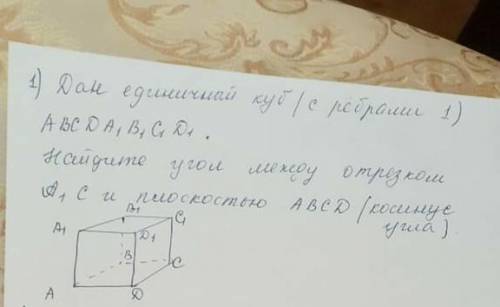 1) Дан единичный куб (с рёбрами 1)
ABCDA₁B₁C₁D₁.
Найдите угол между отрезком
A₁C и плоскостью ABCD (косинус
угла).
B₁
C₁
A₁
D₁
B
C
A
D